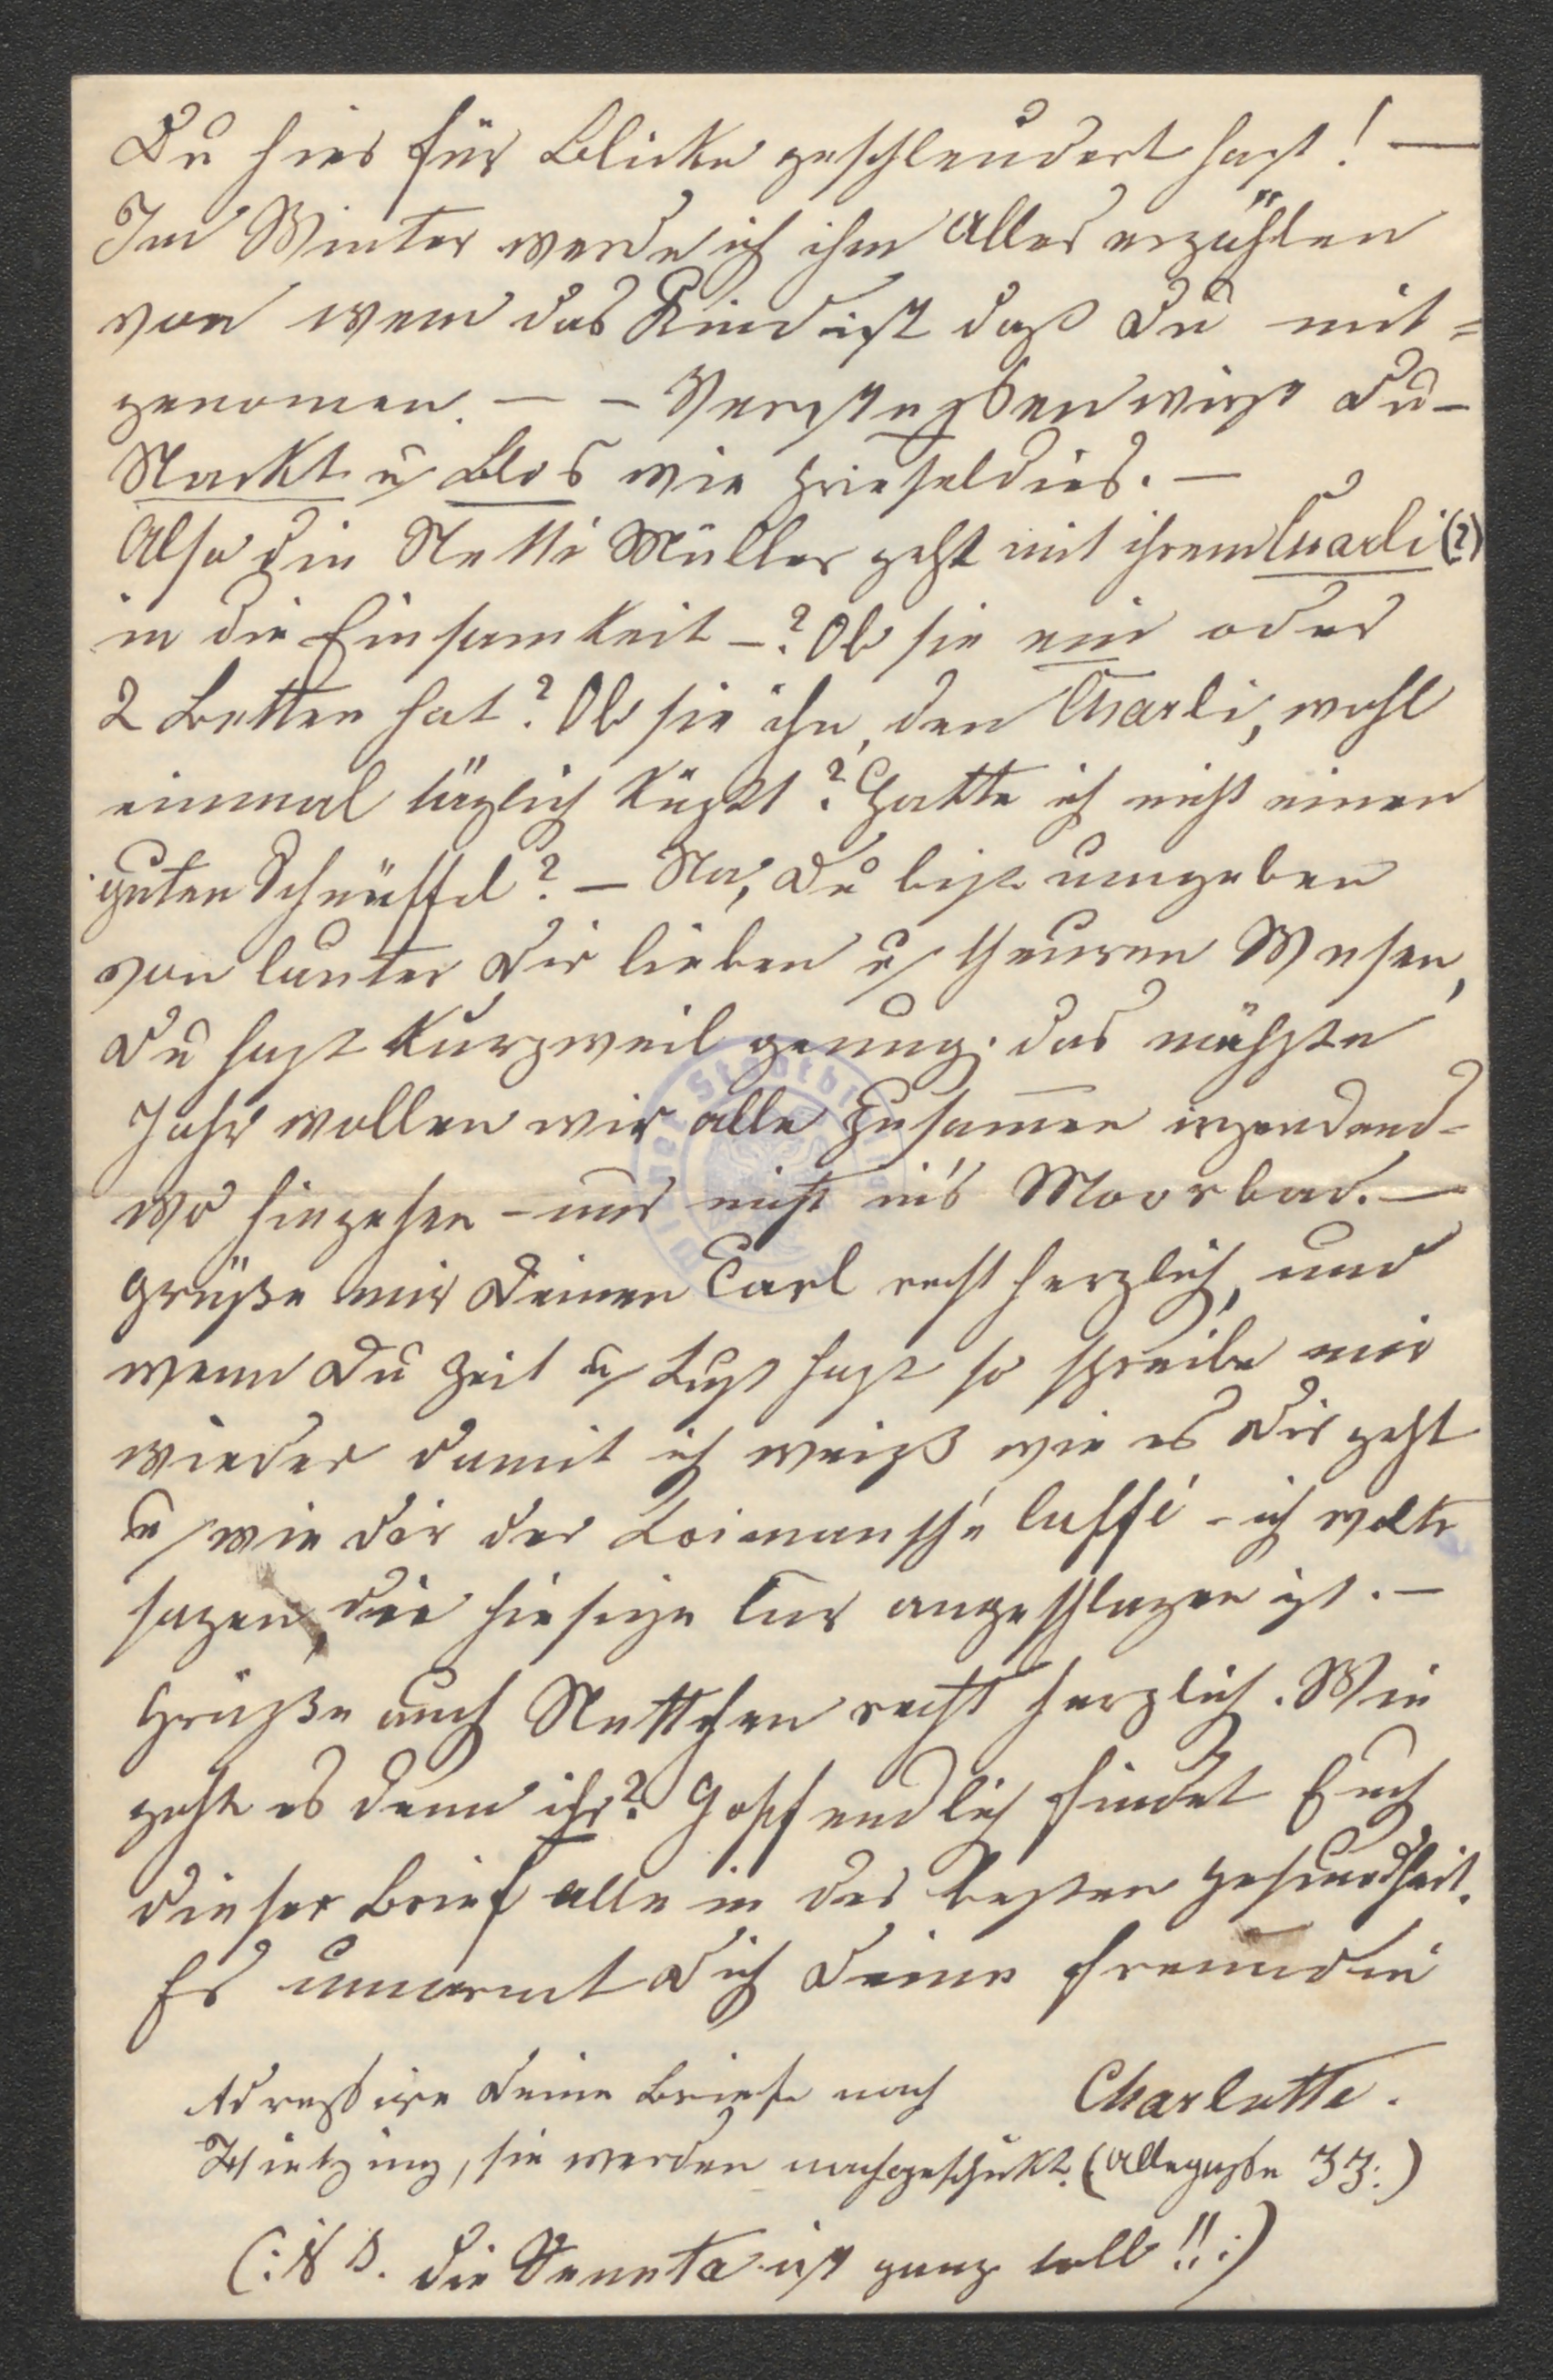 Du hier für Blicke geschleudert hast! —
Im Winter werde ich ihm alles erzählen
von wem das Kind ist daß Du mit=
genomen. — — Verstoßen wirst Du —
Nackt u Blos wie Griseldis. —
Also die Netti Müller geht mit ihrem Charli (?)
in die Einsamkeit —? Ob sie ein oder
2 Betten hat? Ob sie ihn, den Charli, wohl
einmal täglich küßt? Hatte ich nicht einen
guten Schnüffel? — Na, Du bist umgeben
von lauter Dir lieben u theuren Wesen,
Du hast Kurzweil genug; das nächste
Jahr wollen wir alle zusamen irgendend-
wo hingehen – nur nicht in's Moorbad. —
Grüße mir Deinen Carl recht herzlich, und
wenn Du Zeit u Lust hast so schreibe mir
wieder damit ich weiß wie es Dir geht
u wie dir der Caffé – ich wollte
sagen, die hiesige Cur angeschlagen ist. —
Grüße auch Nettchen recht herzlich. Wie
geht es denn ihr? Hoffendlich findet Euch
dieser Brief alle in der besten Gesundheit.
Es umarmt Dich Deine Freundin
Charlotte.
Adressire Deine Briefe nach
Hietzing, sie werden nachgeschickt. (Allegasse 33:)
(: NB. die ist ganz toll!! :)